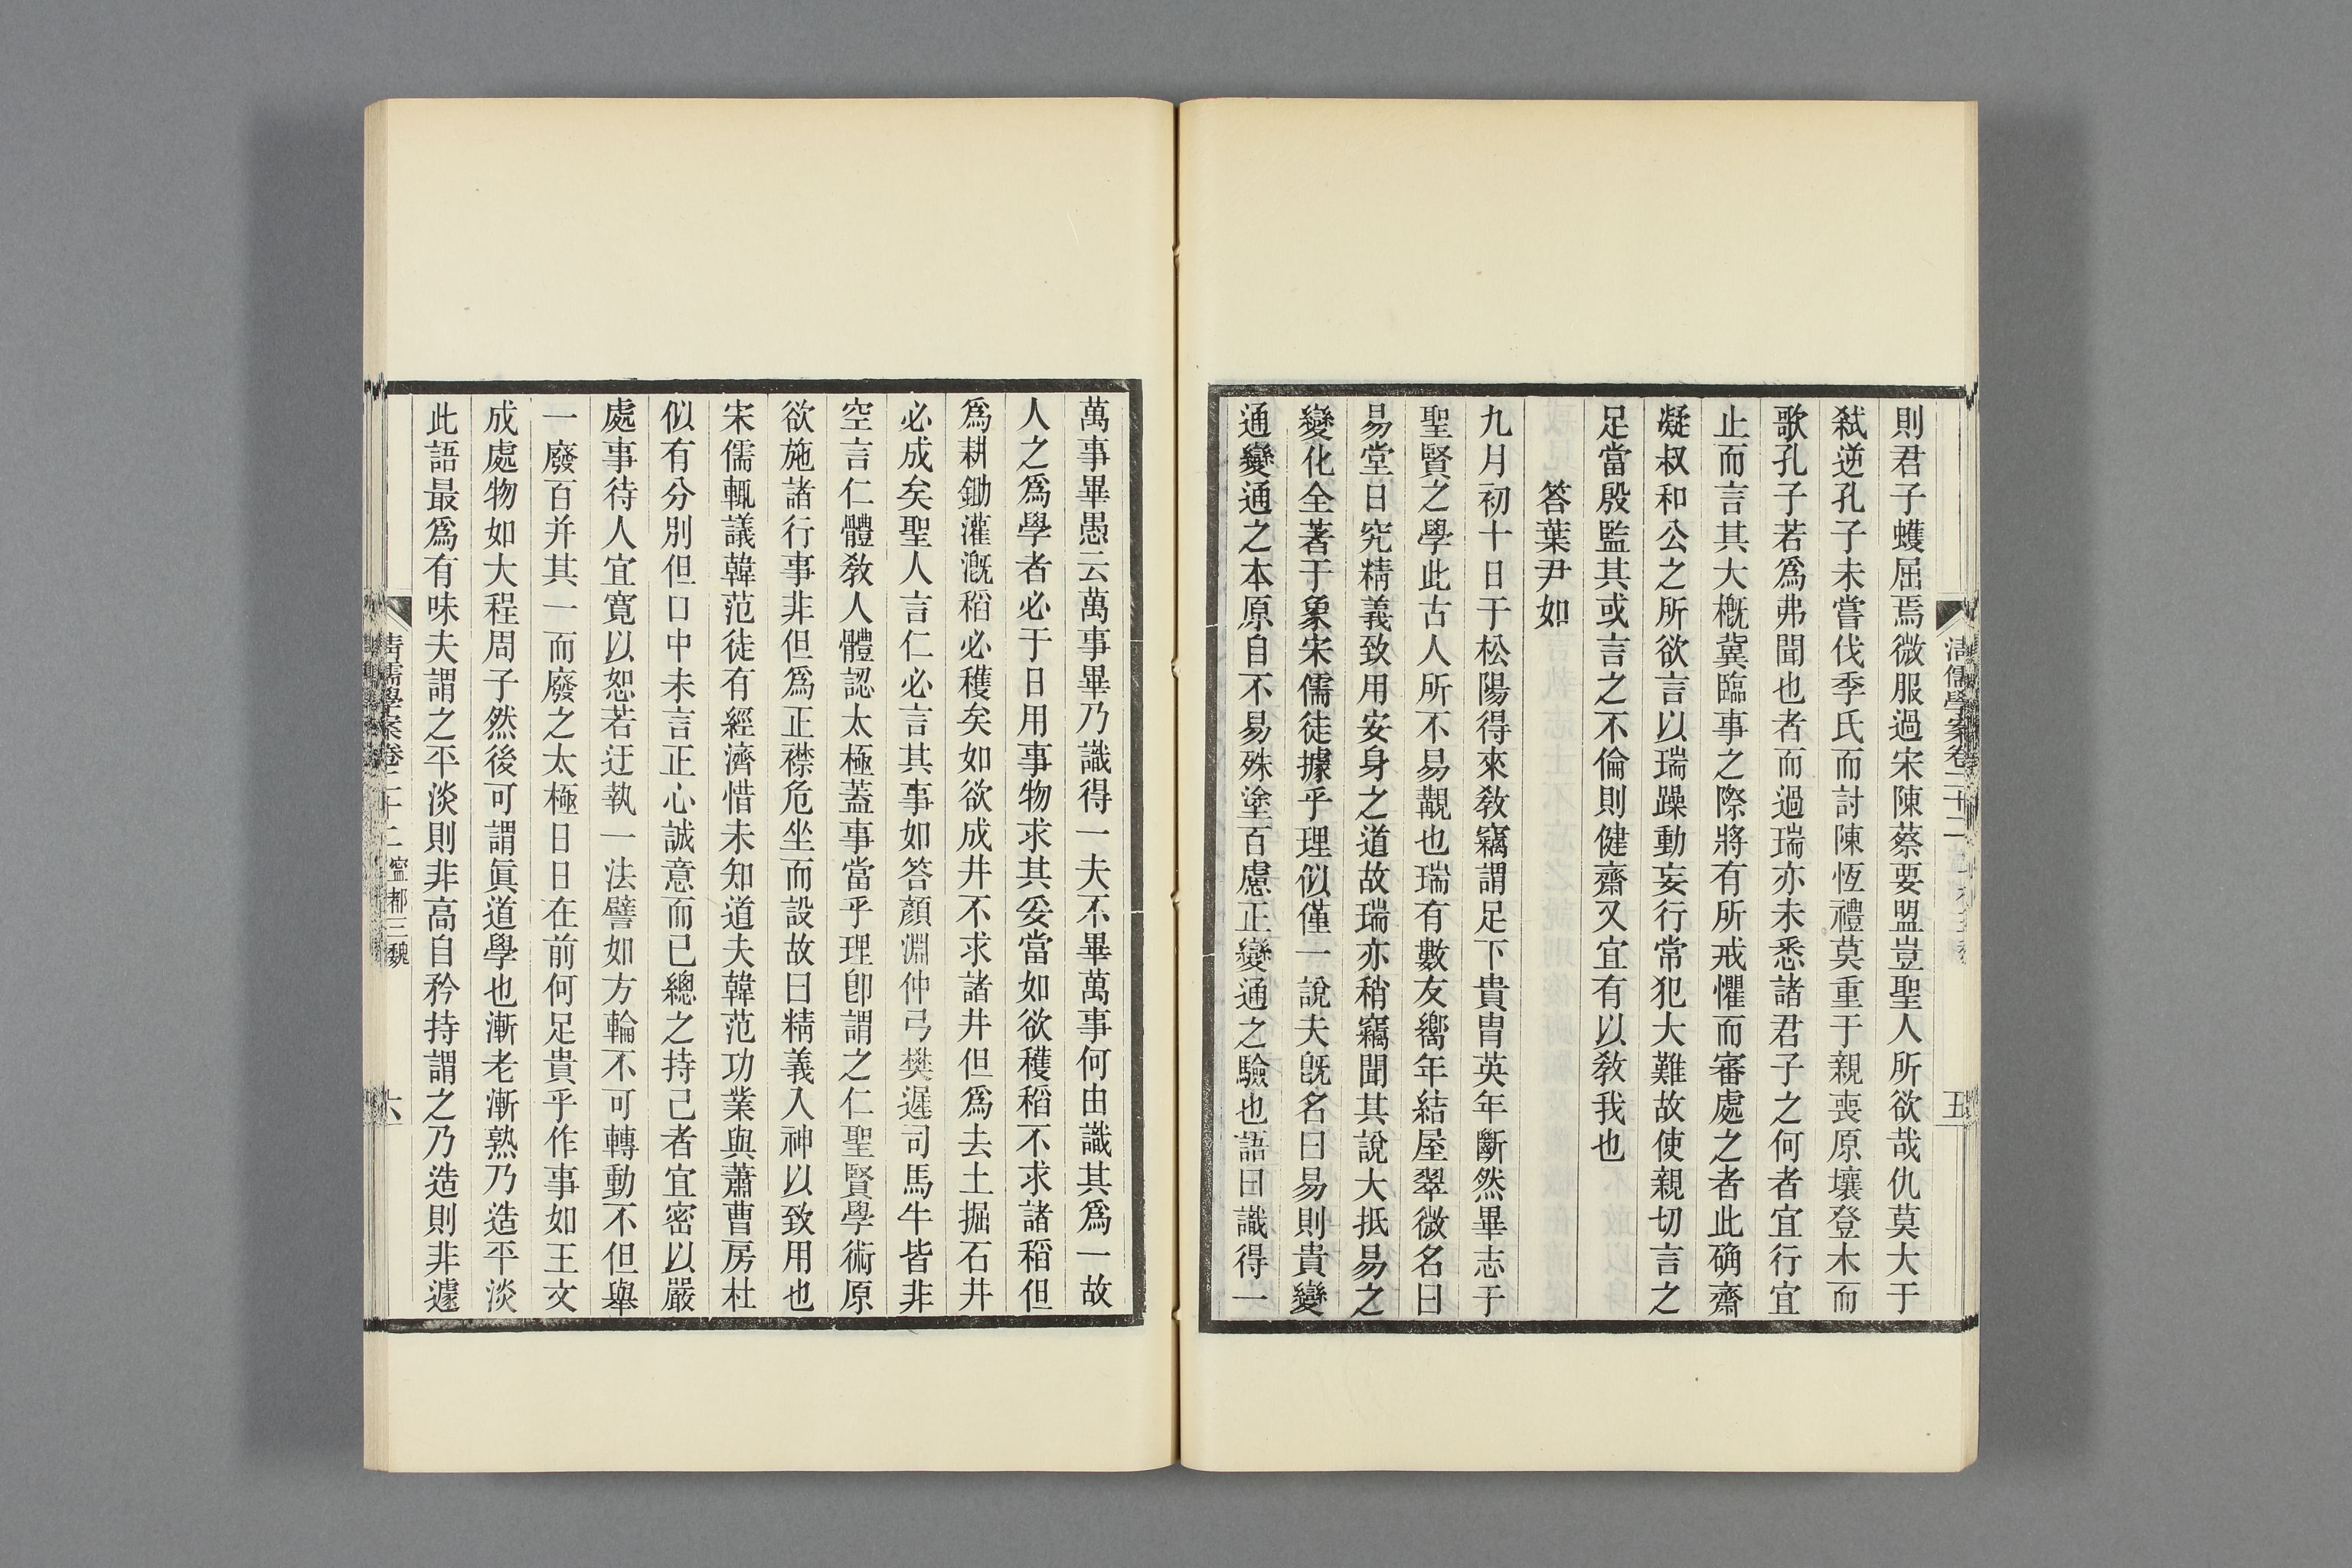 則君子蠖屈焉微服過宋陳蔡要盟豈聖人所欲哉仇莫大于
弒逆孔子未嘗伐季氏而討陳恆禮莫重于親喪原壤登木而
歌孔子若爲弗聞也者而過瑞亦未悉諸君子之何者宜行宜
止而言其大槪冀臨事之際將有所戒懼而審處之者此确齋
凝叔和公之所欲言以瑞躁動妄行常犯大難故使親切言之
足當殷監其或言之不倫則健齋又宜有以敎我也
答葉尹如
九月初十日于松陽得來敎竊謂足下貴胄英年斷然畢志于
聖賢之學此古人所不易覯也瑞有數友嚮年結屋翠微名曰
易堂日究精義致用安身之道故瑞亦稍竊聞其說大抵易之
變化全著于象宋儒徒據乎理似僅一說夫旣名曰易則貴變
通變通之本原自不易殊塗百慮正變通之驗也語曰識得一
清儒學案卷二十二
五
萬事畢愚云萬事畢乃識得一夫不畢萬事何由識其爲一故
人之爲學者必于日用事物求其妥當如欲穫稻不求諸稻但
爲耕鋤灌漑稻必穫矣如欲成井不求諸井但爲去土掘石井
必成矣聖人言仁必言其事如答顏淵仲弓樊遲司馬牛皆非
空言仁體敎人體認太極蓋事當乎理卽謂之仁聖賢學術原
欲施諸行事非但爲正襟危坐而設故曰精義入神以致用也
宋儒輒議韓范徒有經濟惜未知道夫韓范功業與蕭曹房杜
似有分別但口中未言正心誠意而已總之持己者宜密以嚴
處事待人宜寬以恕若迂執一法譬如方輪不可轉動不但舉
一廢百并其一而廢之太極日日在前何足貴乎作事如王文
成處物如大程周子然後可謂眞道學也漸老漸熟乃造平淡
此語最爲有味夫謂之平淡則非高自矜持謂之乃造則非遽
清儒學案卷二十二 寧都三魏
六